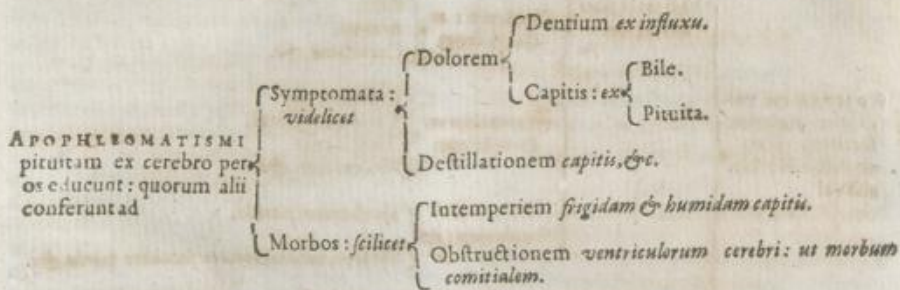 APOPHLEGMATISMI
pituitam ex cerebro per
os educunt: quorum alii
conferunt ad
Symptomata:
videlicet
Dolorem
Dentium ex influxu.
Capitis: ex
Bile.
Pituita.
Destillationem capitis, &c.
Morbos: scilicet
Intemperiem frigidam & humidam capitis.
Obstructionem ventriculorum cerebri: ut morbum
comitialem.